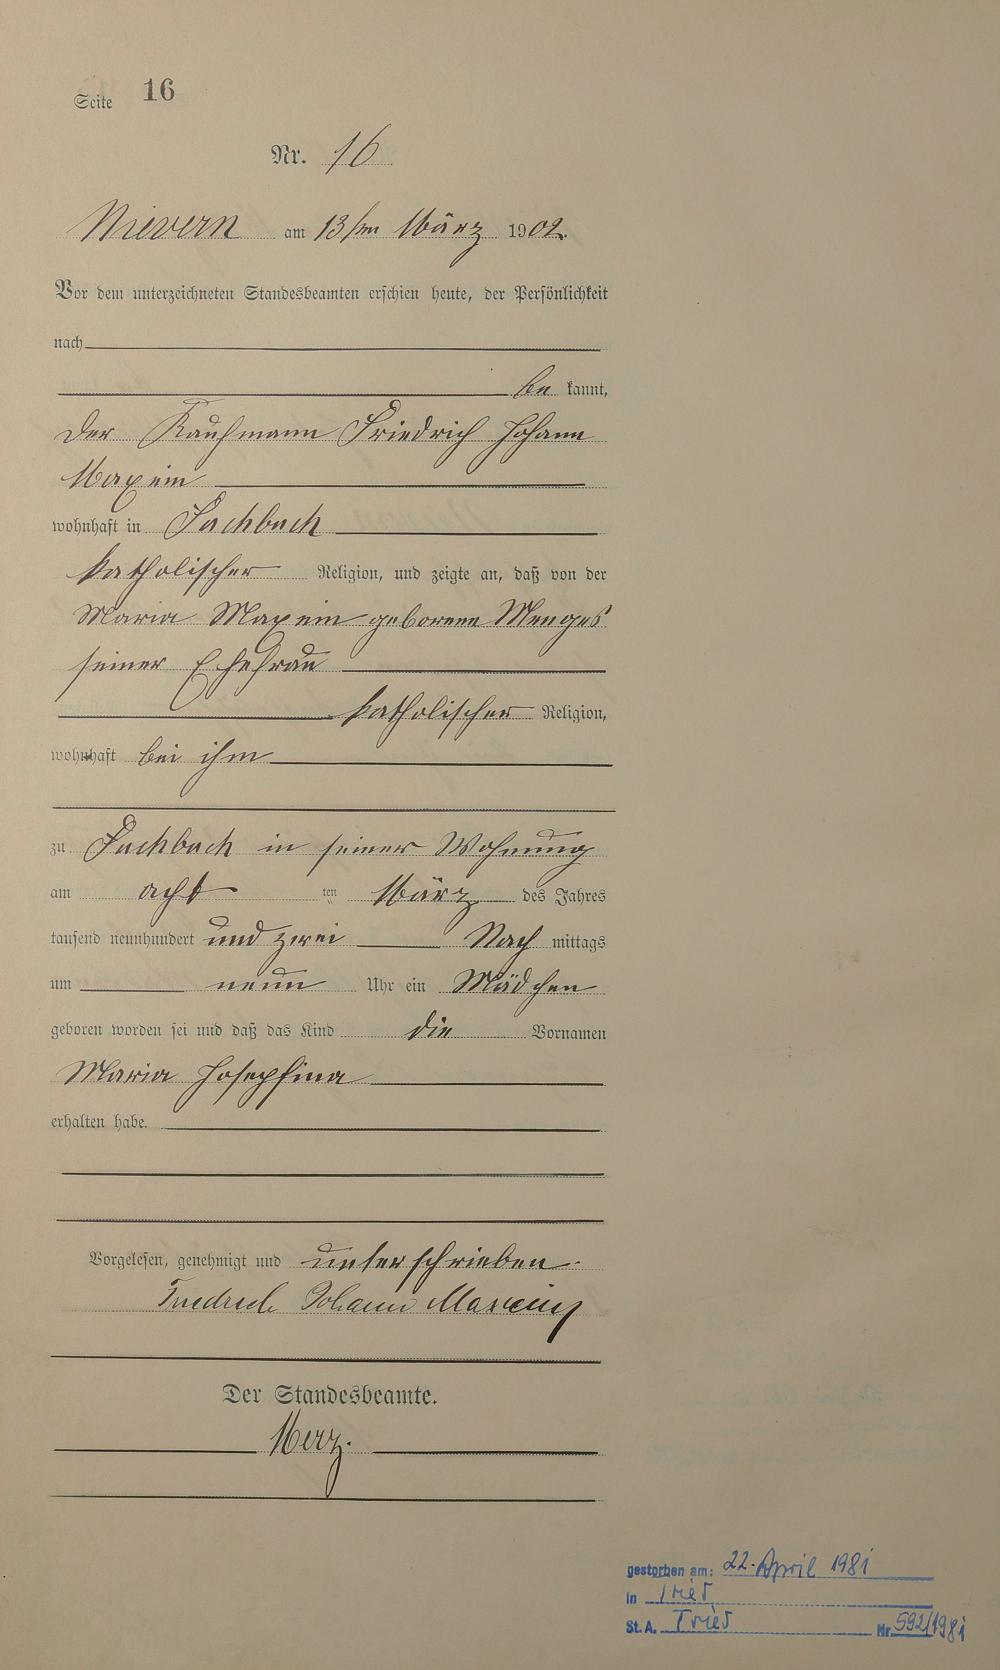 Seite 16
Nr. 16
Nievern am 13ten März 1902.
Vor dem unterzeichneten Standesbeamten erschien heute, der Persönlichkeit
nach
be kannt,
der Kaufmann Friedrich Johann
Maxein
wohnhaft in Fachbach
katholischer Religion, und zeigte an, daß von der
Maria Maxein geborene Menges
seiner Ehefrau
katholischer Religion,
wohnhaft bei ihm
zu Fachbach in seiner Wohnung
am acht ten März des Jahres
tausend neunhundert und zwei Nach mittags
um neun Uhr ein Mädchen
geboren worden sei und daß das Kind die Vornamen
Maria Josephina
erhalten habe.
Vorgelesen, genehmigt und unterschrieben.
Friedrich Johann Maxein
Der Standesbeamte.
Merz.
gestorben am: 22. April 1981
in Trier
St. A. Trier Nr. 592/1981